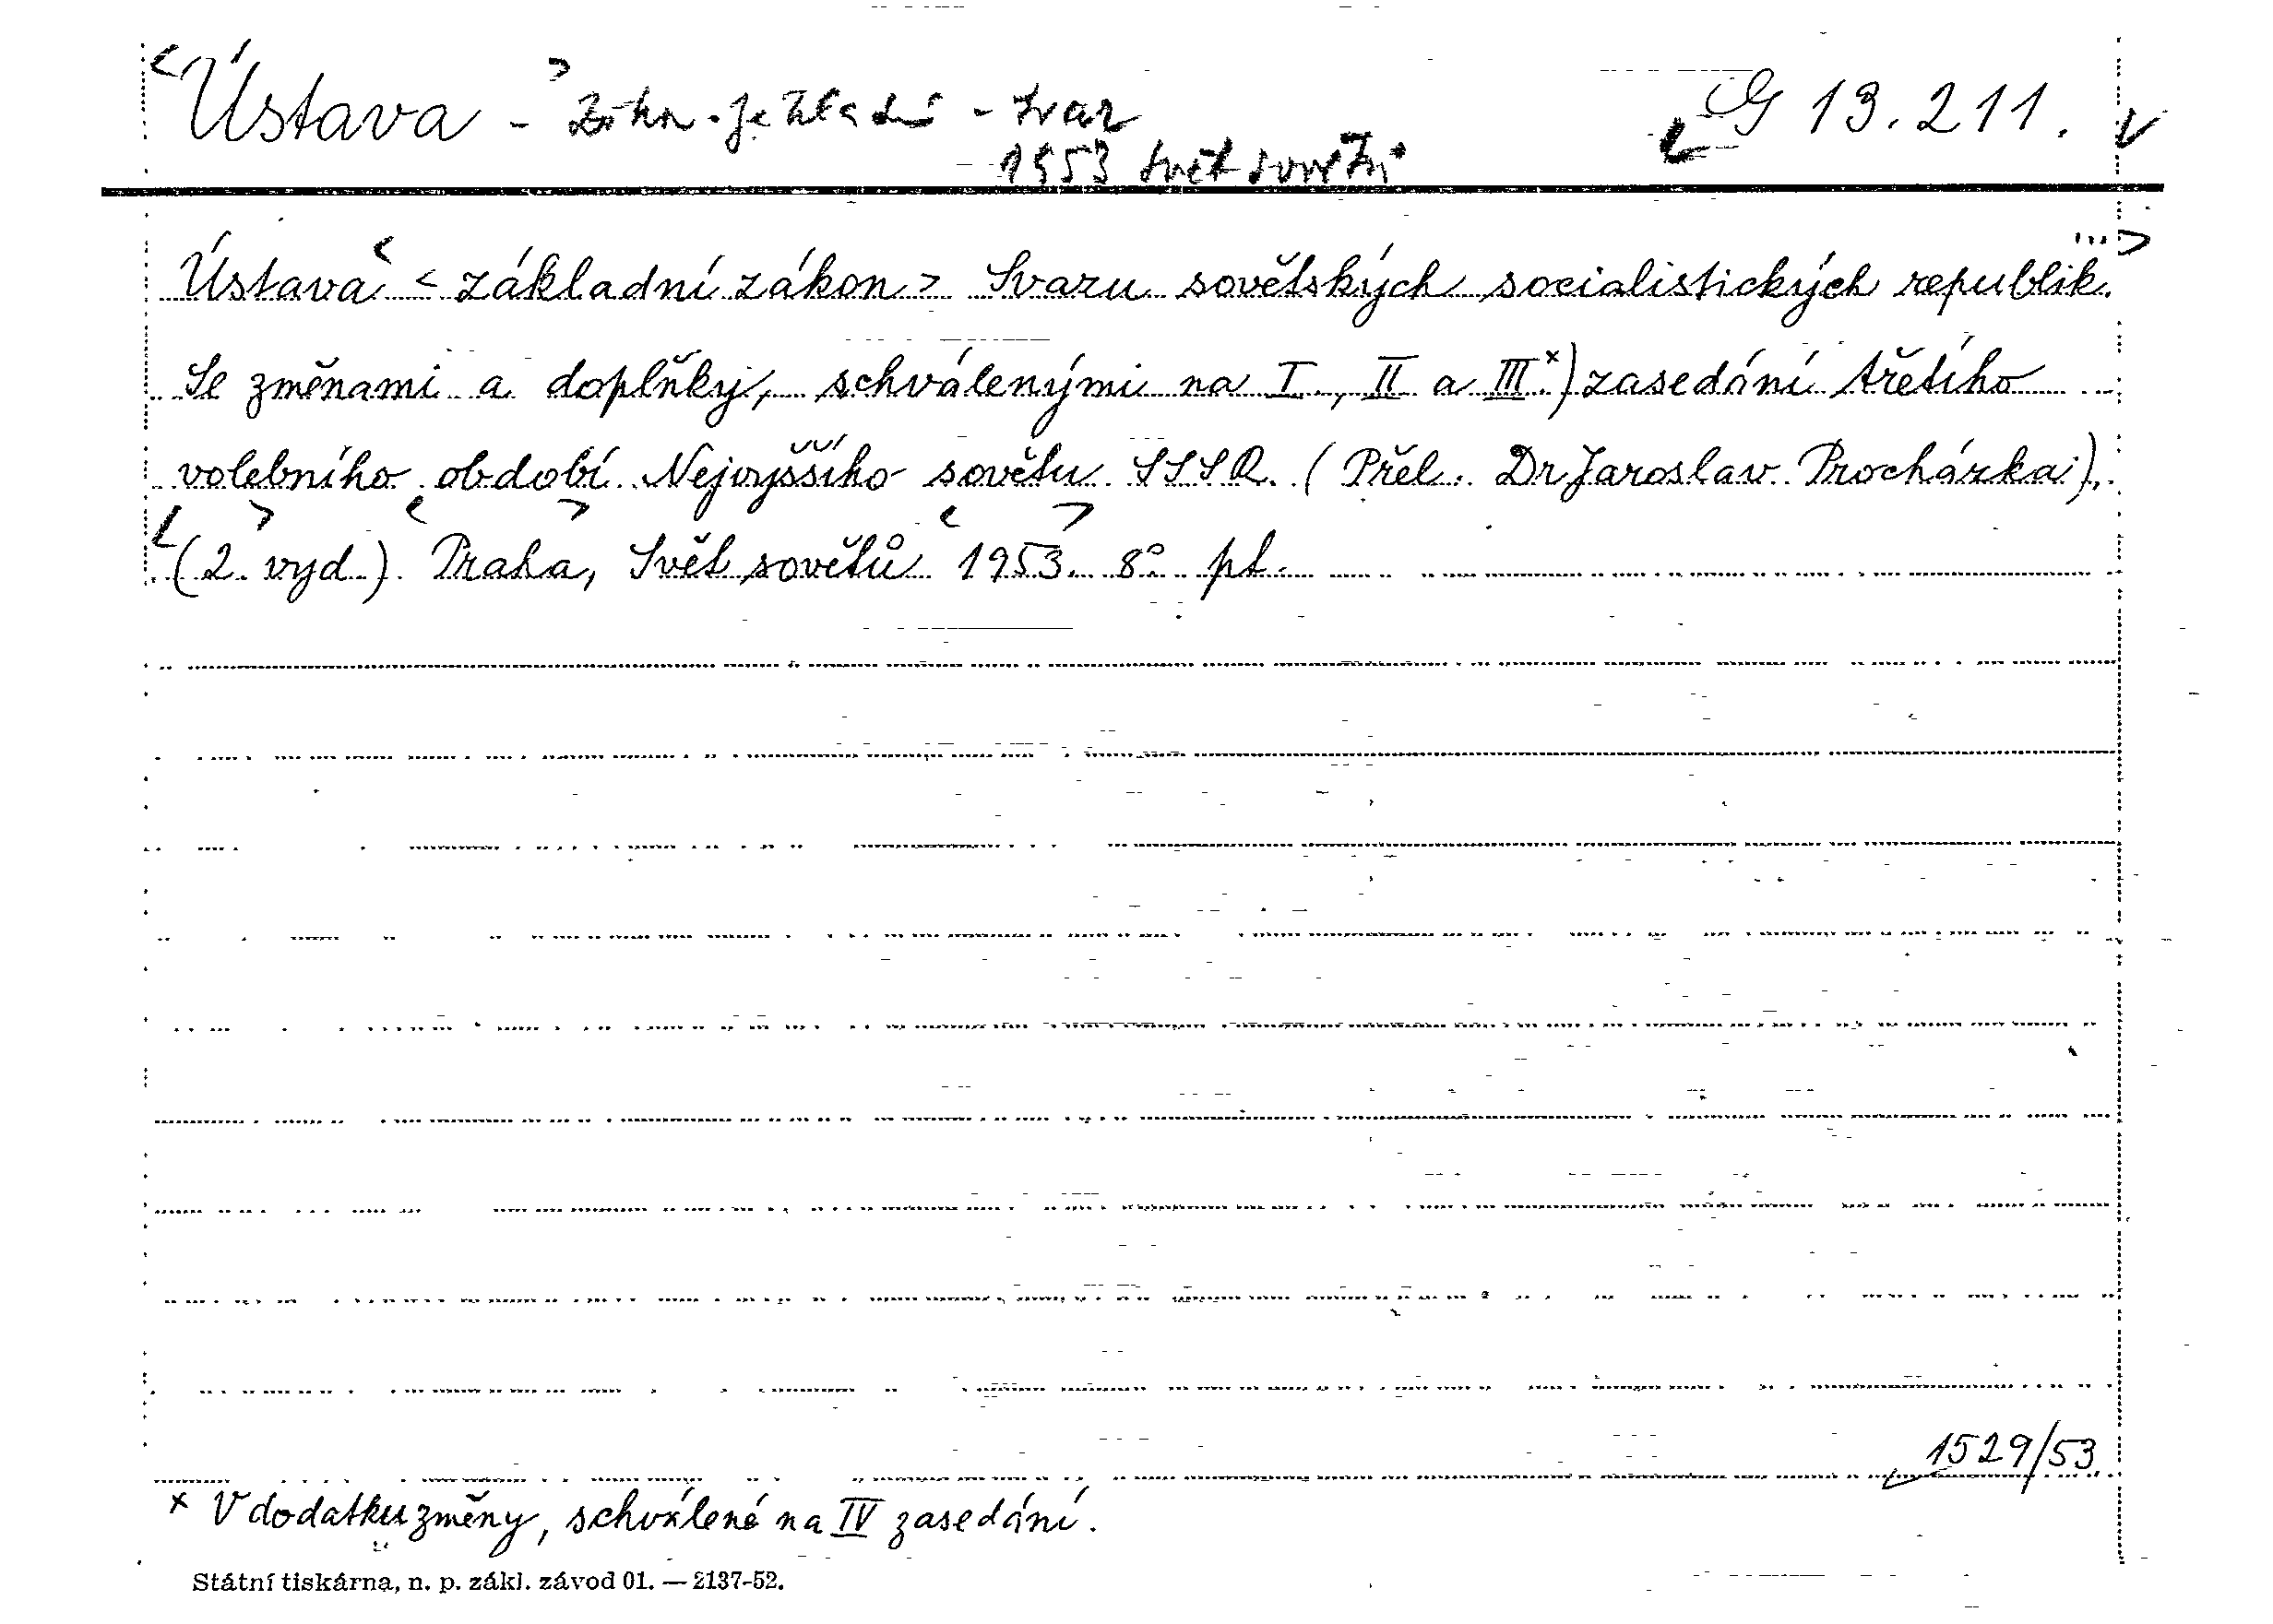 Ústava - Zákon základní - Svaz G 13.211.
1953 Svět sovětů
Ústava < základní zákon > Svazu sovětských socialistických republik.
Se změnami a doplňky, schválenými na I., II a III.x) zasedání třetího
volebního období Nejvyššího sovětu SSSR. (Přel. Dr Jaroslav Procházka).
(2. vyd.). Praha, Svět sovětů 1953. 8° pt.
1529/53.
x V dodatku změny, schválené na IV zasedání.
Státní tiskárna, n. p. zákl. závod 01. — 2137-52.